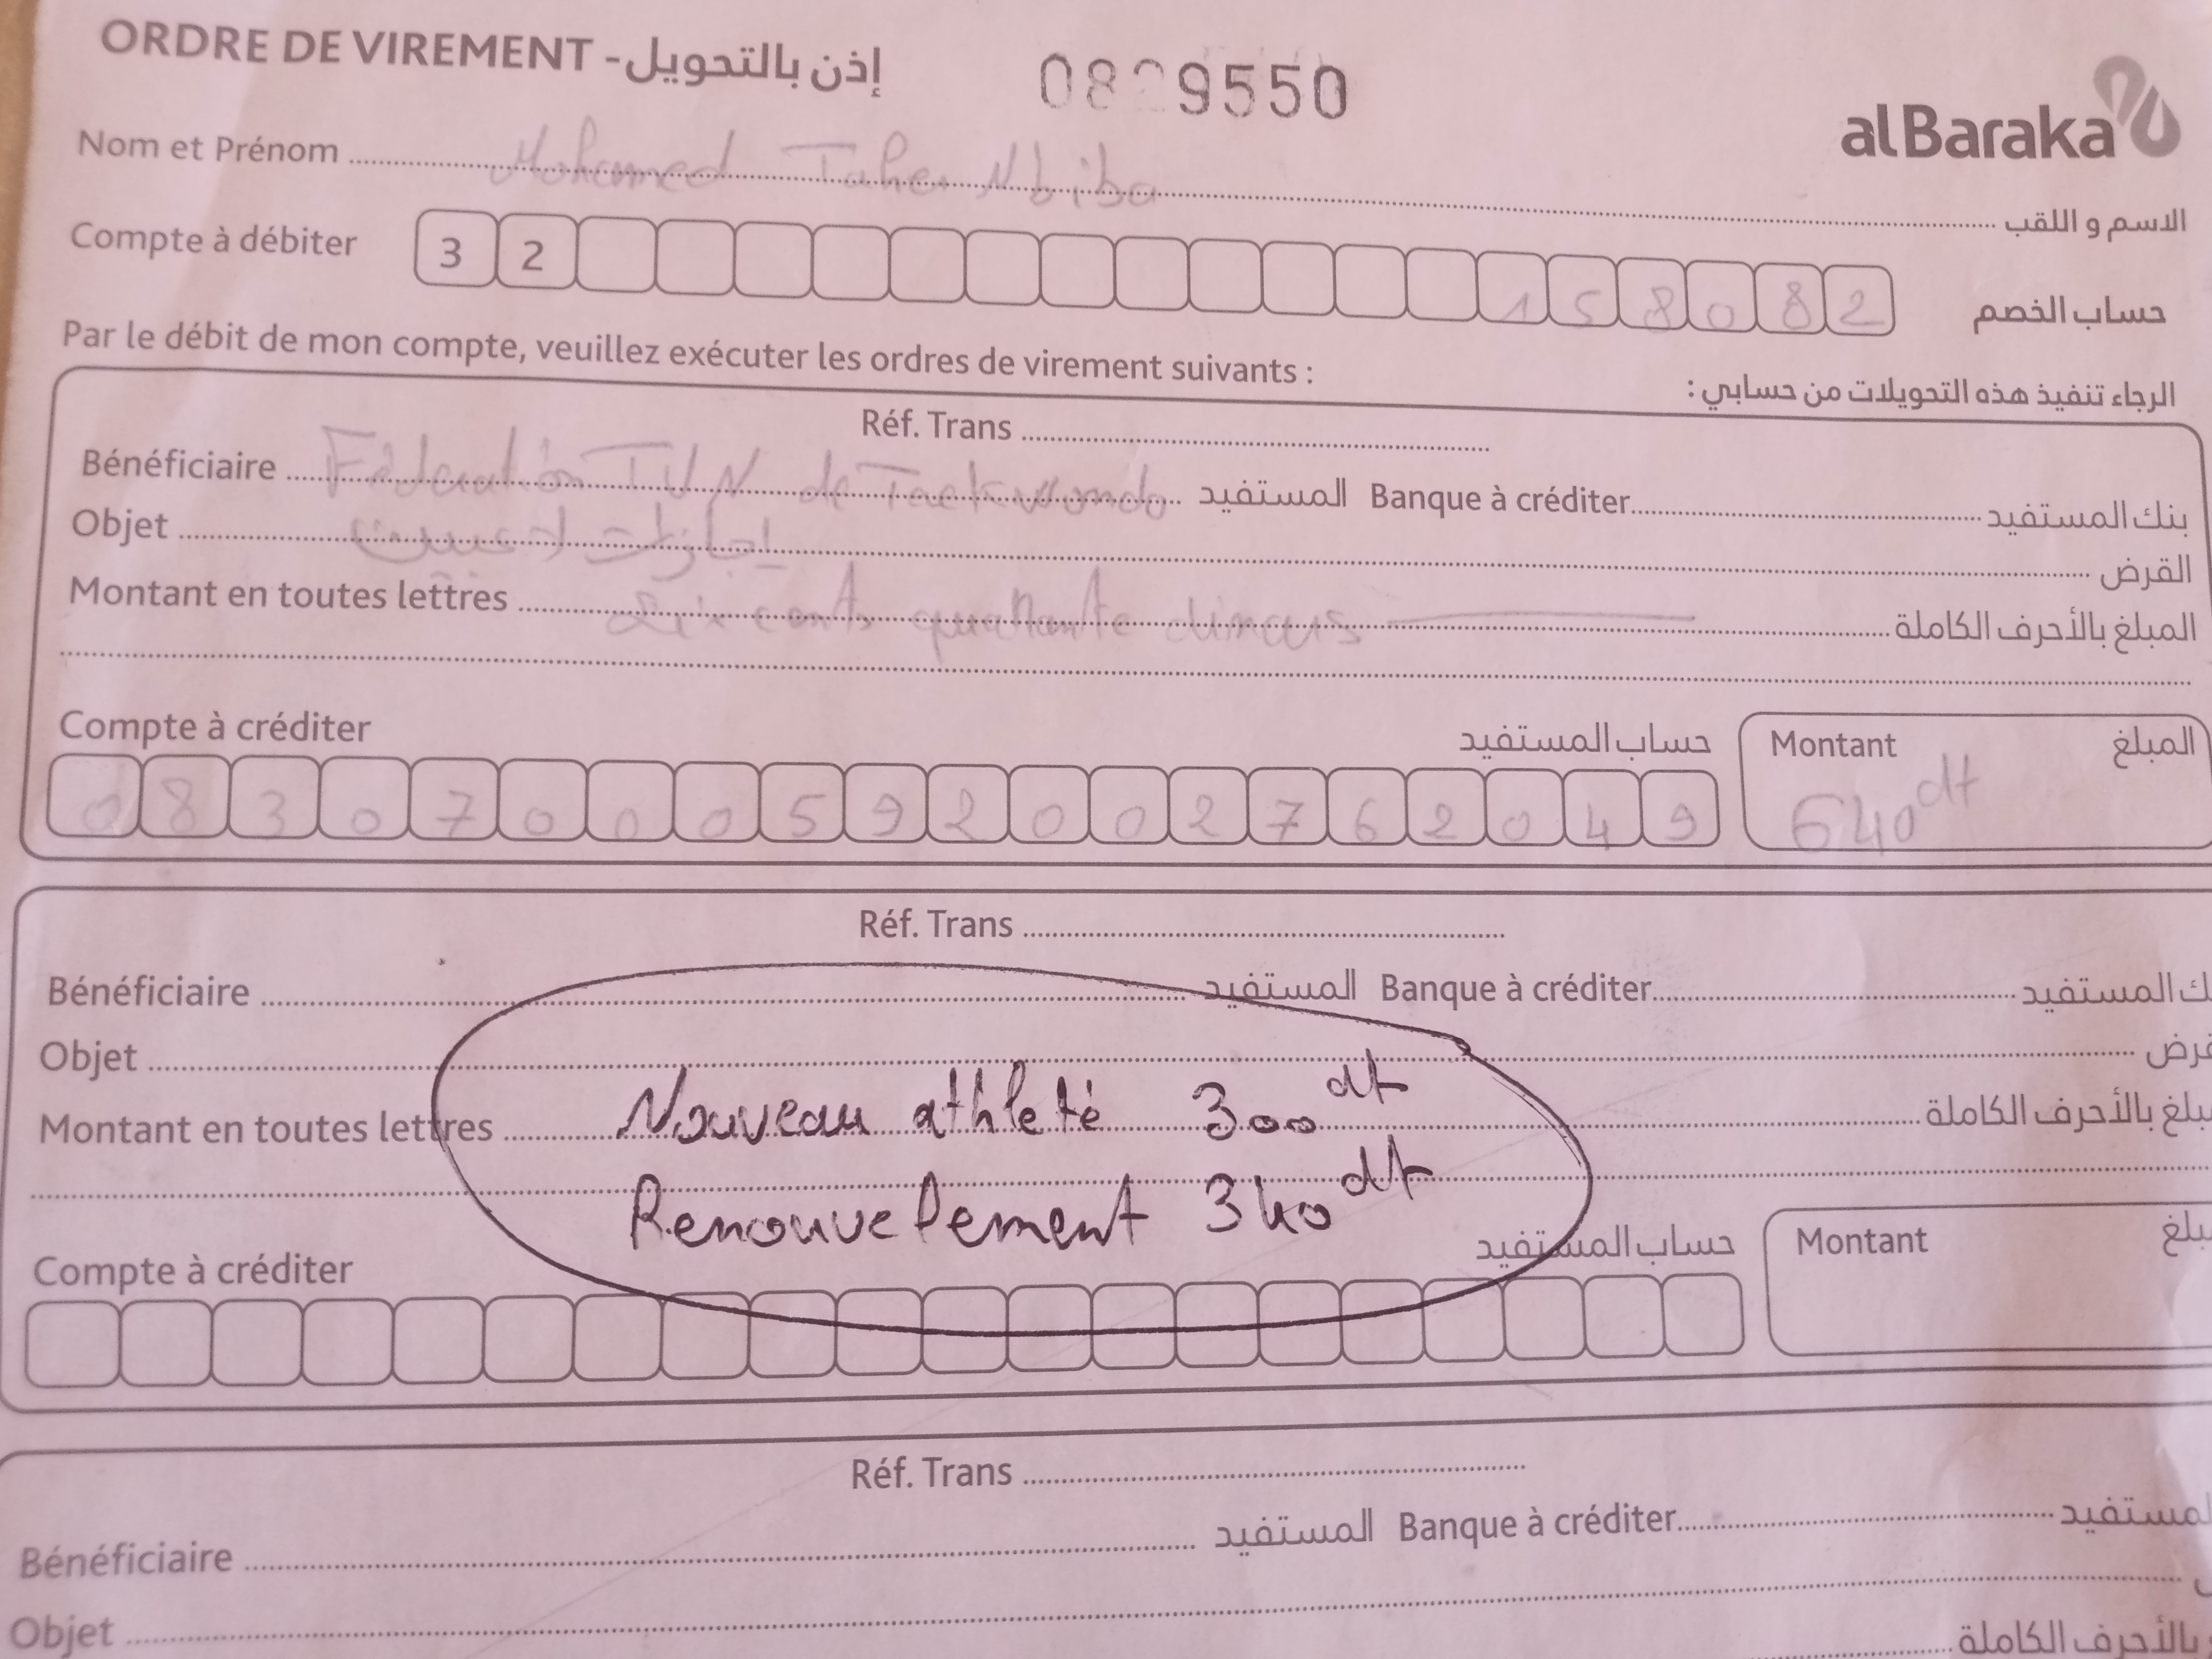 ORDRE DE VIREMENT - إذن بالتحويل
9550
alBaraka
Nom et Prénom Mohamed Taher الاسم و اللقب
Compte à débiter 3 2 1 5 8 0 8 2 حساب الخصم
Par le débit de mon compte, veuillez exécuter les ordres de virement suivants :
الرجاء تنفيذ هذه التحويلات من حسابي :
Réf. Trans
Bénéficiaire Fédération TUN de Taekwondo المستفيد Banque à créditer بنك المستفيد
Objet اجازات القرض
Montant en toutes lettres Six cents quarante dinars المبلغ بالأحرف الكاملة
Compte à créditer حساب المستفيد
0 8 3 0 7 0 0 0 5 9 2 0 0 2 7 6 2 0 4 9
Montant المبلغ
640 dt
Réf. Trans
Bénéficiaire المستفيد Banque à créditer ك المستفيد
Objet رض
Montant en toutes lettres بلغ بالأحرف الكاملة
Nouveau athleté 300 dt
Renouvelement 340 dt
Compte à créditer حساب المستفيد
Montant بلغ
Réf. Trans
Bénéficiaire المستفيد Banque à créditer لمستفيد
Objet
بالأحرف الكاملة